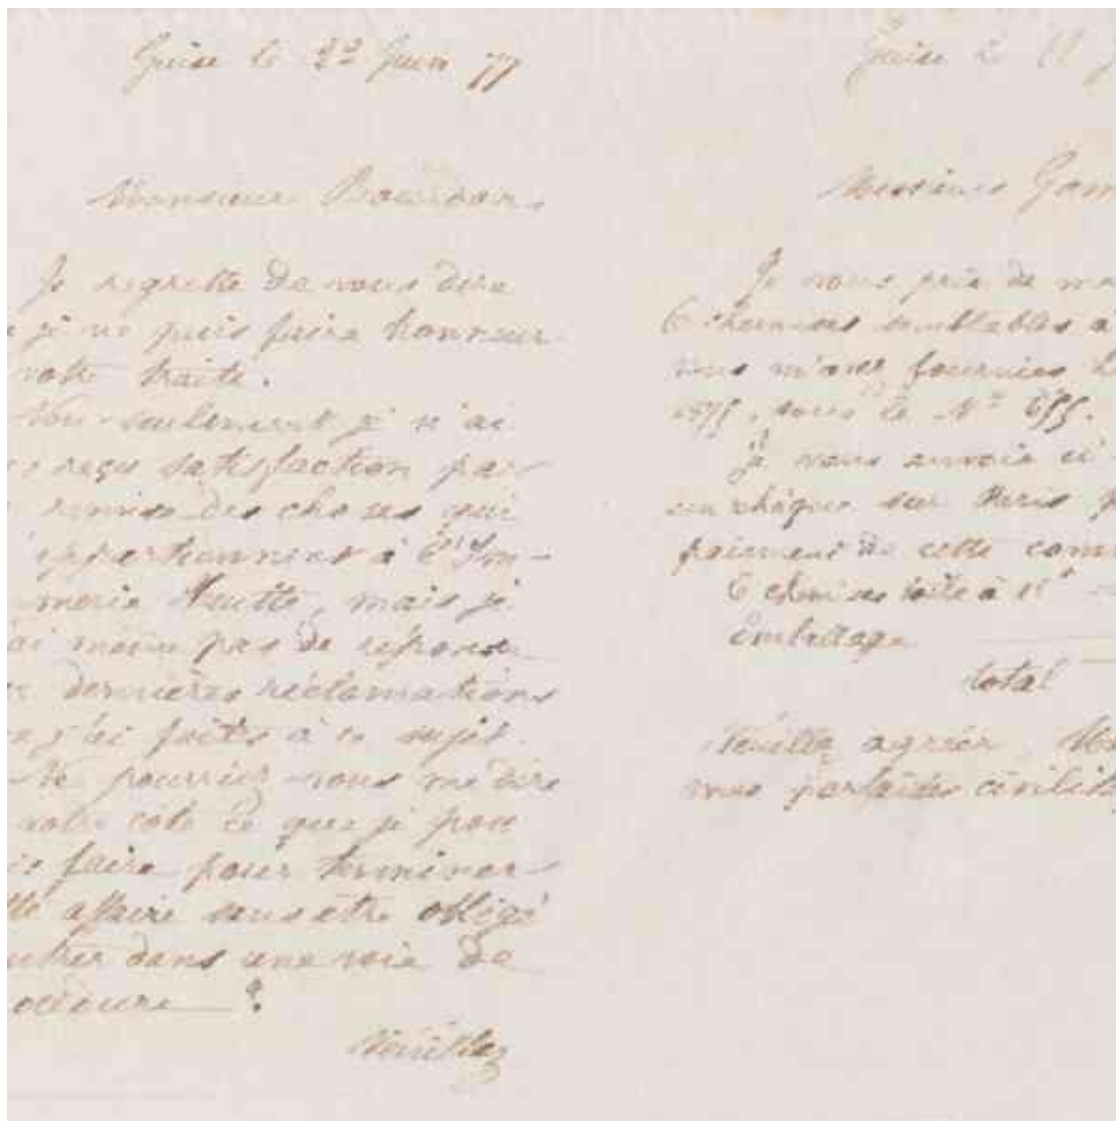 Guise le 22 Juin 77
Monsieur Bourdon
Je regrette de vous dire
je ne puis faire honneur
votre traite.
Non-seulement je n'ai
reçu satisfaction par
remise des choses qui
à l'Im-
merie Nutte, mais je
ai même pas de réponse
dernières réclamations
j'ai faites à ce sujet.
Ne pourriez-vous me dire
votre côté ce que je pou
faire pour terminer
affaire sans être obligé
dans une voie de
?
Veuillez
Guise le 22 J
Messieurs
Je vous prie de
6 chemises semblables
vous m'avez fournies
sous le N° 655.
Je vous envoie ci
un chèque sur Paris
paiement de cette com
6 chemises toile à
Emballage
total
Veuillez agréer,
mes parfaites civilités